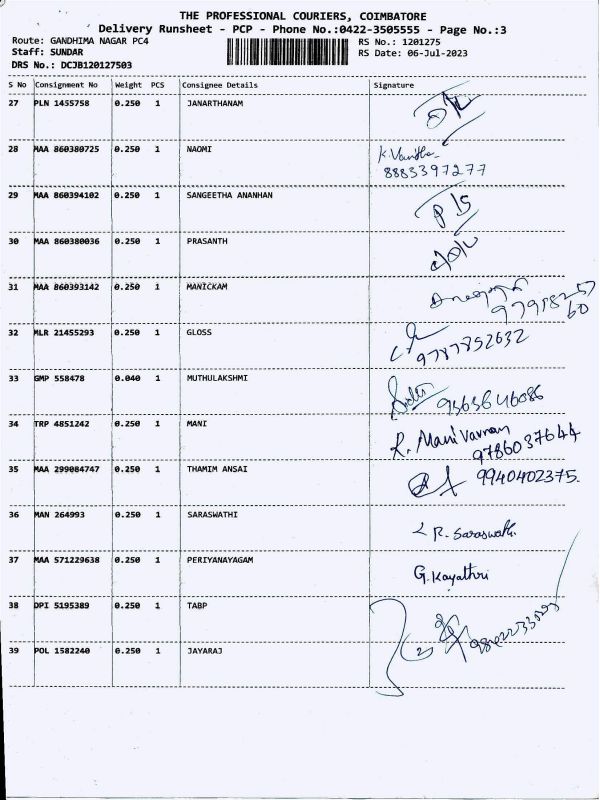 THE PROFESSIONAL COURIERS, COIMBATORE
Delivery Runsheet - PCP - Phone No.:0422-3505555 - Page No.:3
Route: GANDHIMA NAGAR PC4 RS No.: 1201275
Staff: SUNDAR RS Date: 06-Jul-2023
DRS No.: DCJB120127503
S No Consignment No Weight PCS Consignee Details Signature
27 PLN 1455758 0.250 1 JANARTHANAM
28 MAA 860380725 0.250 1 NAOMI K. Vanitha
8883397277
29 MAA 860394102 0.250 1 SANGEETHA ANANHAN P/S
30 MAA 860380036 0.250 1 PRASANTH
31 MAA 860393142 0.250 1 MANICKAM
32 MLR 21455293 0.250 1 GLOSS 9787852632
33 GMP 558478 0.040 1 MUTHULAKSHMI
34 TRP 4851242 0.250 1 MANI R. Mani Varman
9786037644
35 MAA 299084747 0.250 1 THAMIM ANSAI 9940402375.
36 MAN 264993 0.250 1 SARASWATHI R. Saraswathi
37 MAA 571229638 0.250 1 PERIYANAYAGAM G. Kayathri
38 DPI 5195389 0.250 1 TABP
39 POL 1582240 0.250 1 JAYARAJ